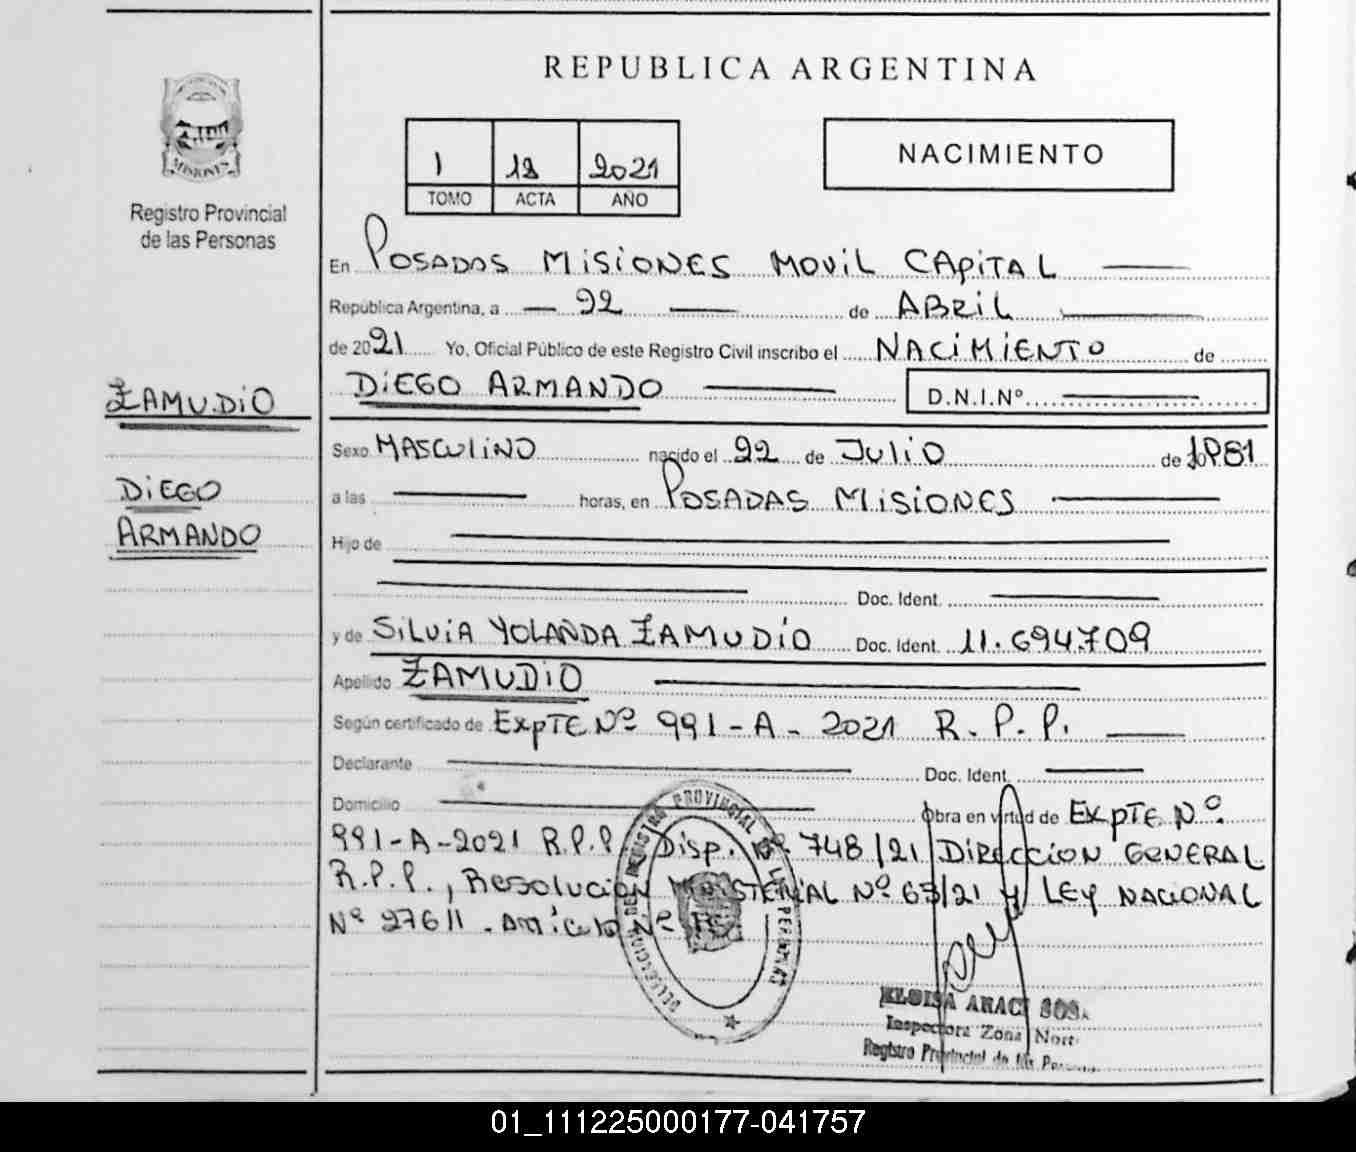 REPUBLICA ARGENTINA
MISIONES
Registro Provincial
de las Personas
1 18 2021
TOMO ACTA AÑO
NACIMIENTO
En POSADAS MISIONES MOVIL CAPITAL
República Argentina, a 22 de ABRIL
de 2021 Yo, Oficial Público de este Registro Civil inscribo el NACIMIENTO de
DIEGO ARMANDO D.N.I.Nº
ZAMUDIO
DIEGO
ARMANDO
Sexo MASCULINO nacido el 22 de JULIO de 1981
a las horas, en POSADAS MISIONES
Hijo de
Doc. Ident.
y de SILVIA YOLANDA ZAMUDIO Doc. Ident. 11.694.709
Apellido ZAMUDIO
Según certificado de EXPTE Nº 991-A-2021 R.P.P.
Declarante Doc. Ident.
Domicilio Obra en virtud de EXPTE Nº.
991-A-2021 R.P.P. Disp. Nº 748/21 DIRECCION GENERAL
R.P.P., RESOLUCION MINISTERIAL Nº 63/21 Y LEY NACIONAL
Nº 27611. Artículo Nº
DEL REGISTRO PROVINCIAL DE LAS PERSONAS
ELOISA ARACI SOSA
Inspectora Zona Norte
Registro Provincial de las Personas
01_111225000177-041757